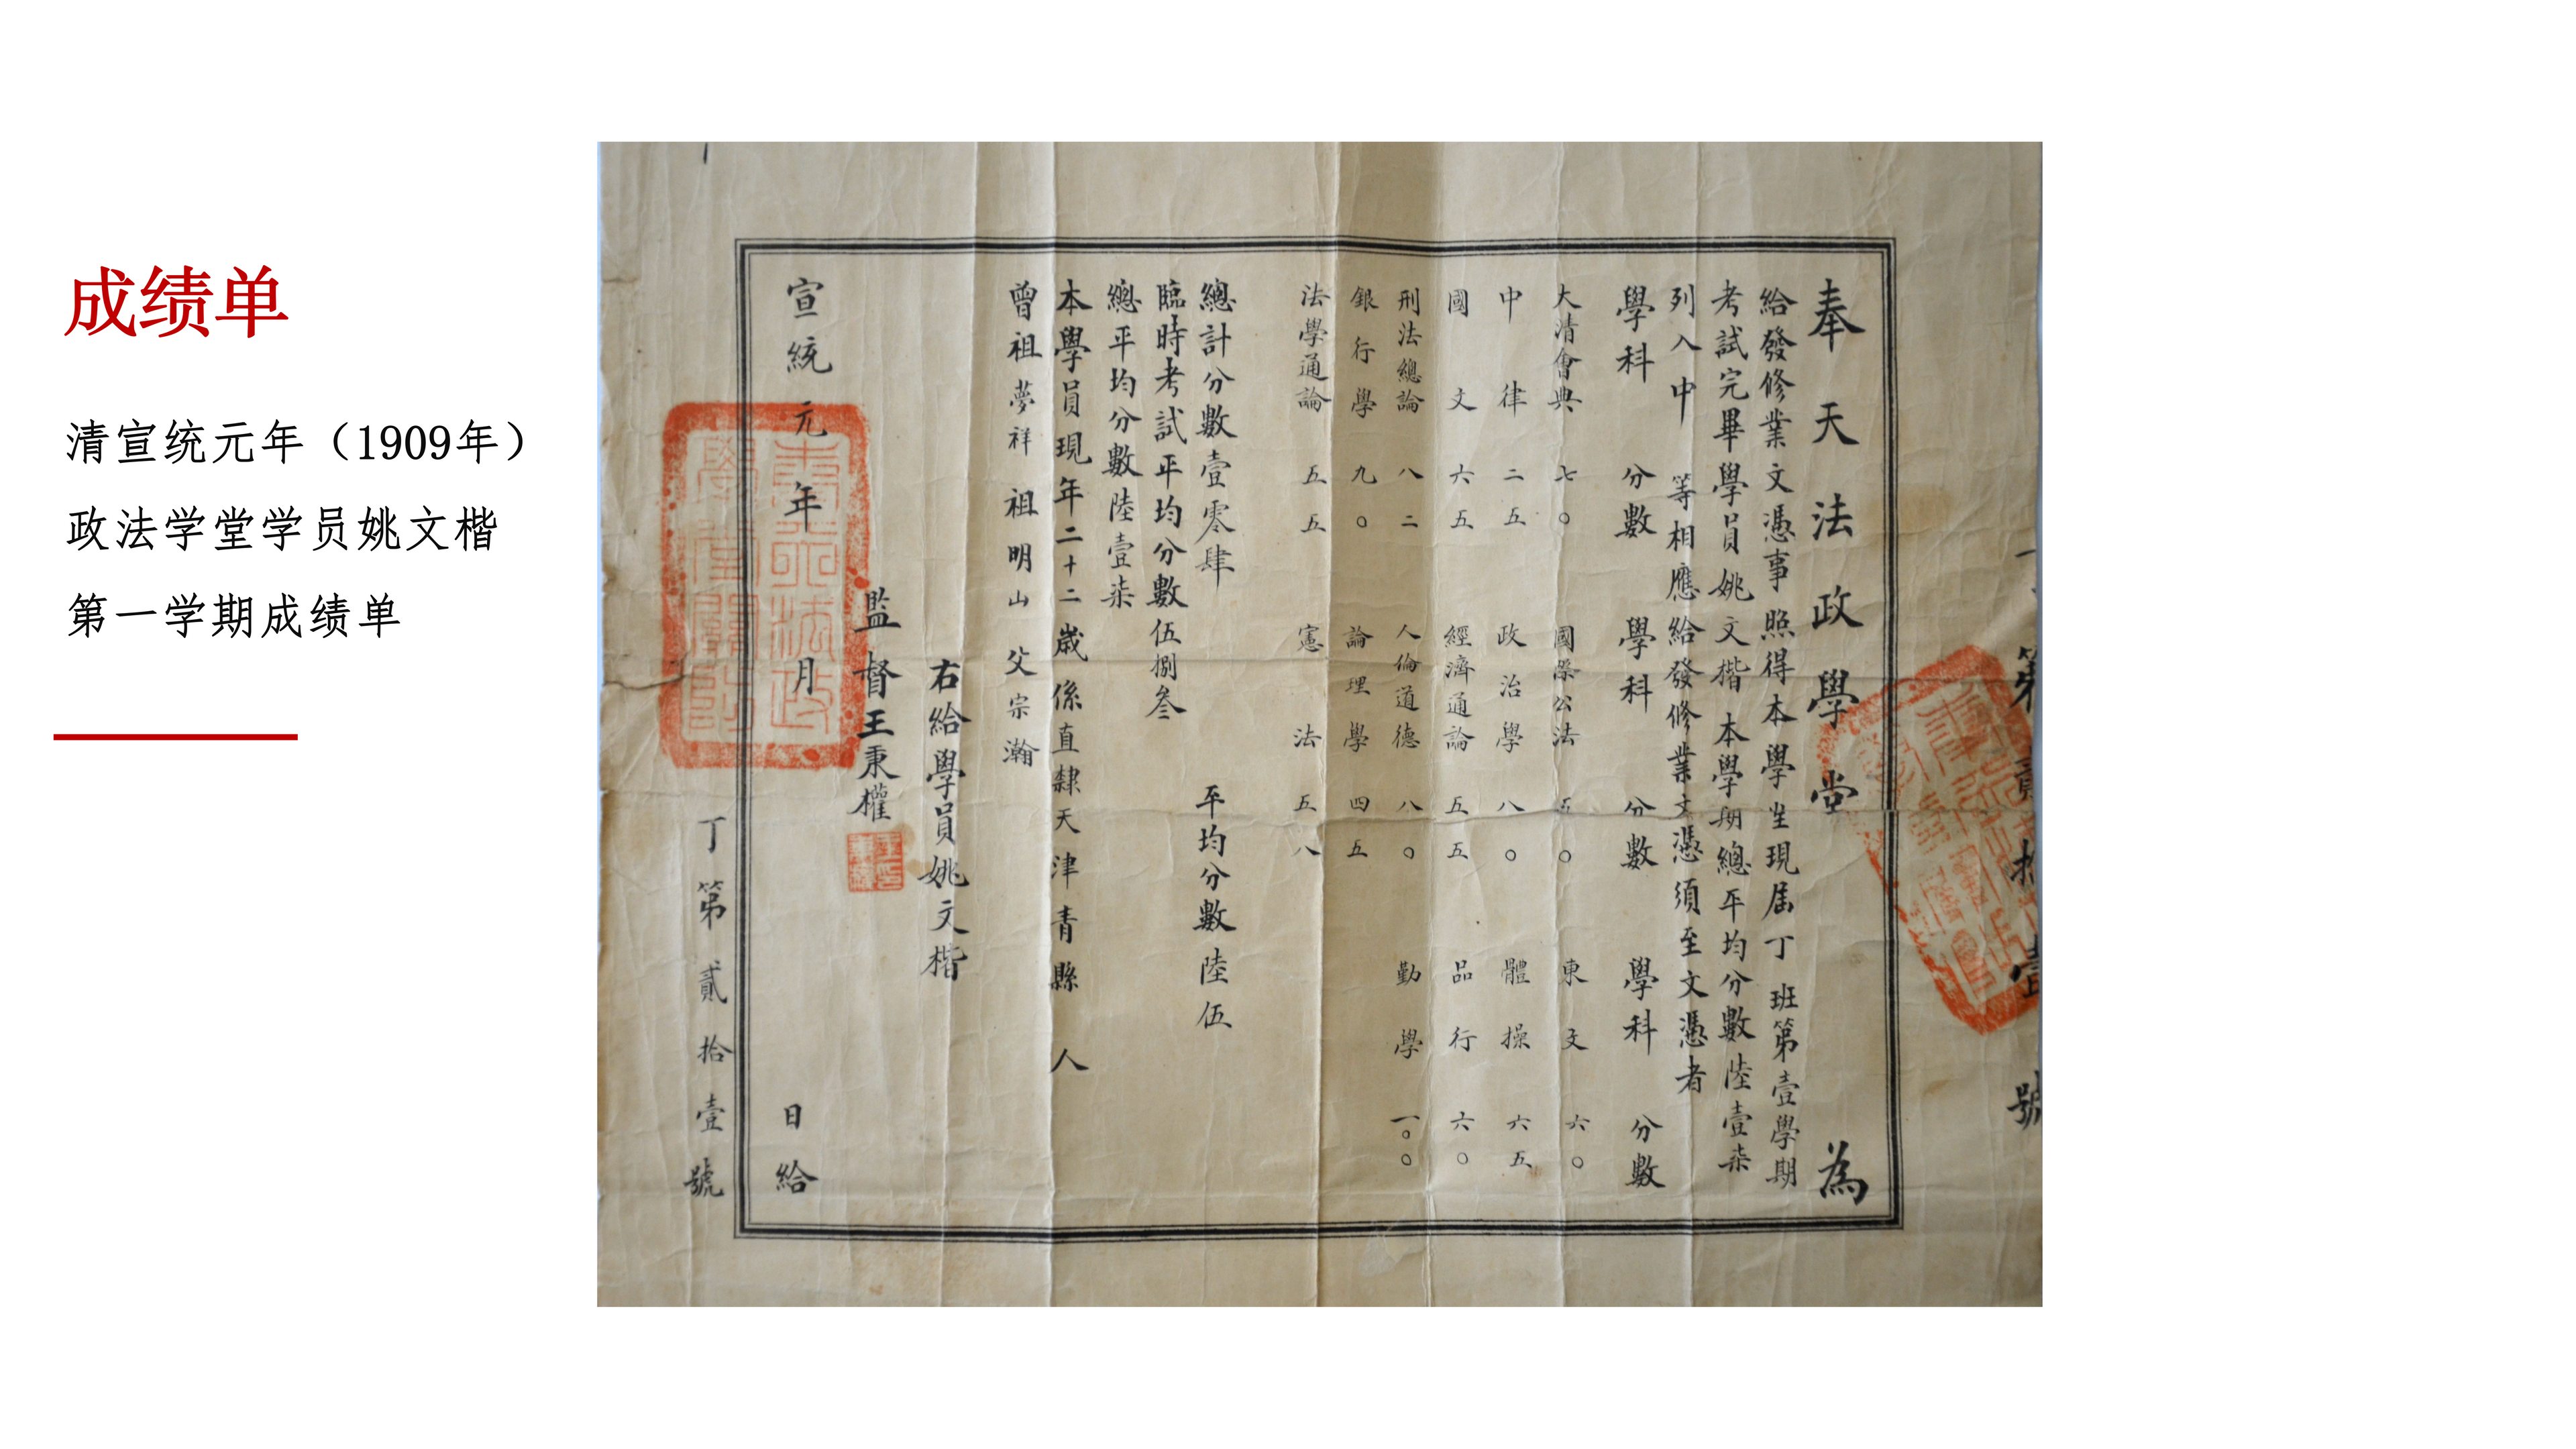 成绩单
清宣统元年（1909年）
政法学堂学员姚文楷
第一学期成绩单
奉天法政學堂 為
給發修業文憑事照得本學堂現届丁班第壹學期
考試完畢學員姚文楷本學期總平均分數陸壹柒
列入中等相應給發修業文憑須至文憑者
學科 分數 學科 分數 學科 分數
大清會典 七〇 國際公法 五〇 東文 六〇
中律 二五 政治學 八〇 體操 六五
國文 六五 經濟通論 五五 品行 六〇
刑法總論 八二 人倫道德 八〇 勤學 一〇〇
銀行學 九〇 論理學 四五
法學通論 五五 憲法 五八
總計分數壹零肆 平均分數陸伍
臨時考試平均分數伍捌叁
總平均分數陸壹柒
本學員現年二十二歲係直隸天津青縣人
曾祖夢祥 祖明山 父宗瀚
右給學員姚文楷
監督王秉權
宣統元年 月 日給
丁第貳拾壹號